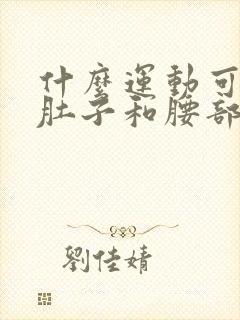 什麼運動可
肚子和腰部
劉佳婧